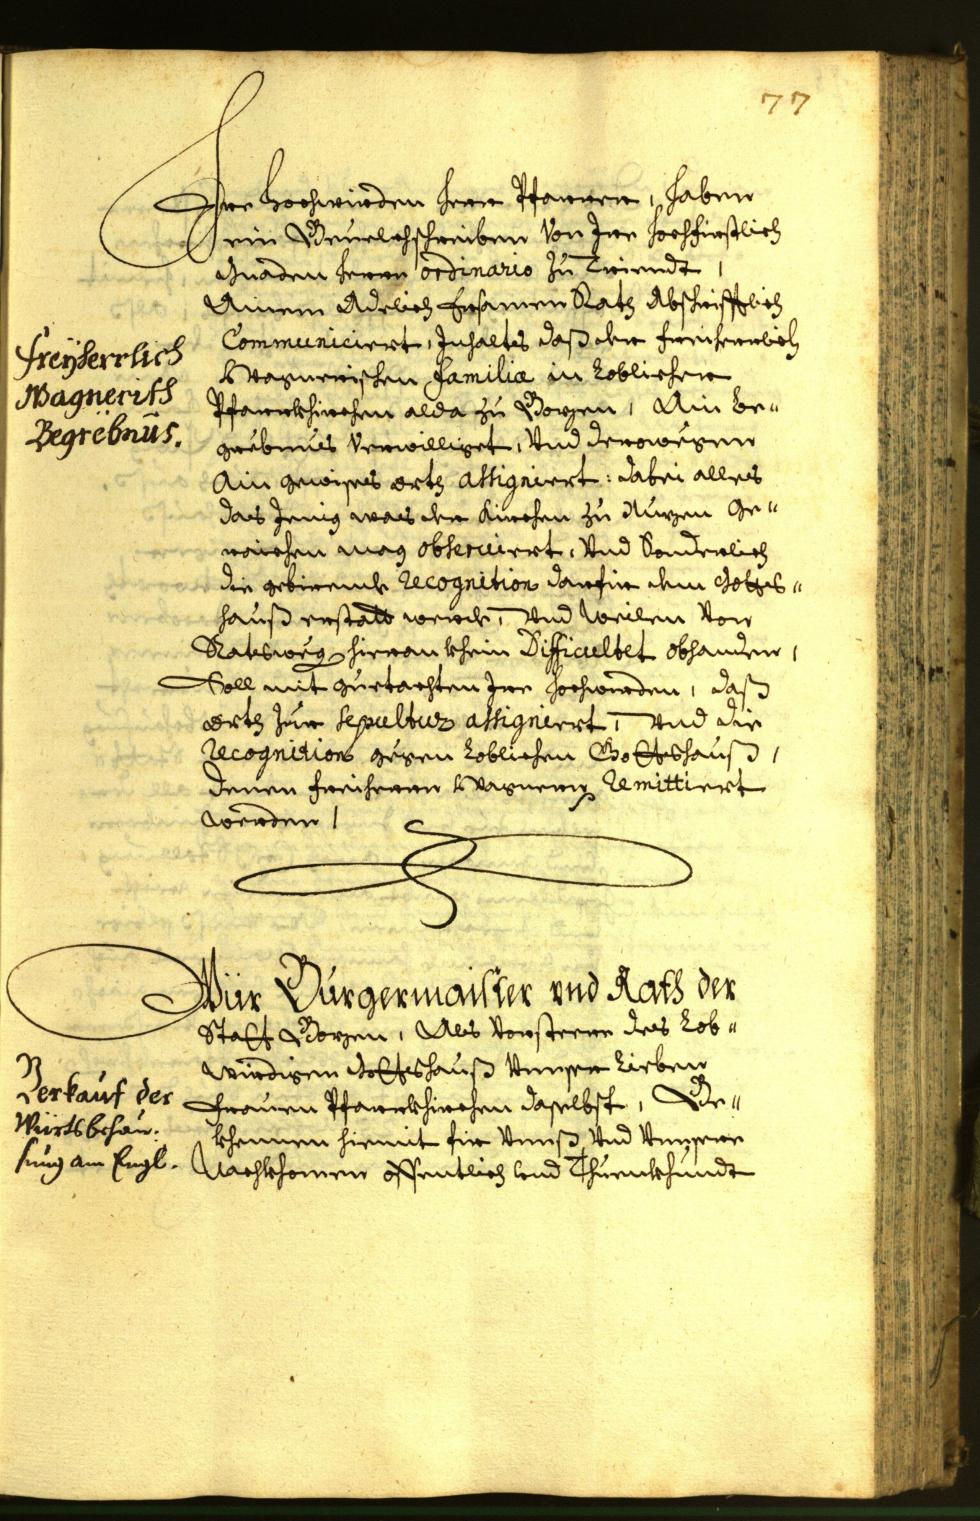 77
Ire Hochwürden herr Pfarrer, haben
ein Bevelchschreiben Von Irr hochfürstlich
Gnaden herrn ordinario zu Triendt,
Ainem Adelich Ersamen Rath Abschrifftlich
Communiciert, Inhaltes daß der freiherrlich
Wagnerischen familiæ in Loblicher
Pfarrkhirchen alda zu Bozen, Ain Be-
grebnus Verwilliget, Vnd derowegen
Ain gewises orth assigniert: dabei alles
das Jenig was der Kirchen zu Nuzen Ge-
raichen mag observiert, Vnd Sonderlich
die gebirende Recognition darfür dem Gotts-
hauß erstatt werde, Vnd Weilen Von
Ratsweg hieran khein Difficultet obhanden,
Soll mit guetachten Irr hochwürden, daß
orth zur Sepultur assigniert, Vnd die
Recognition gegen Loblichen Gottshauß,
denen freiherrn Wagnern Remittiert
werden,
freÿherrlich
Wagnerish
Begrebnus.
Wür Burgermaister vnd Rath der
Statt Bozen, Als Vorsteere des Lob-
würdigen Gottshauß Vnnser Lieben
Frauen Pfarrkhirchen daselbst, Be-
khennen hiemit für Vnnß Vnd Vnnsere
Nachkhomen offentlich Vnd Thuen khundt
Verkauf der
Würtsbehau-
sung am Engl.